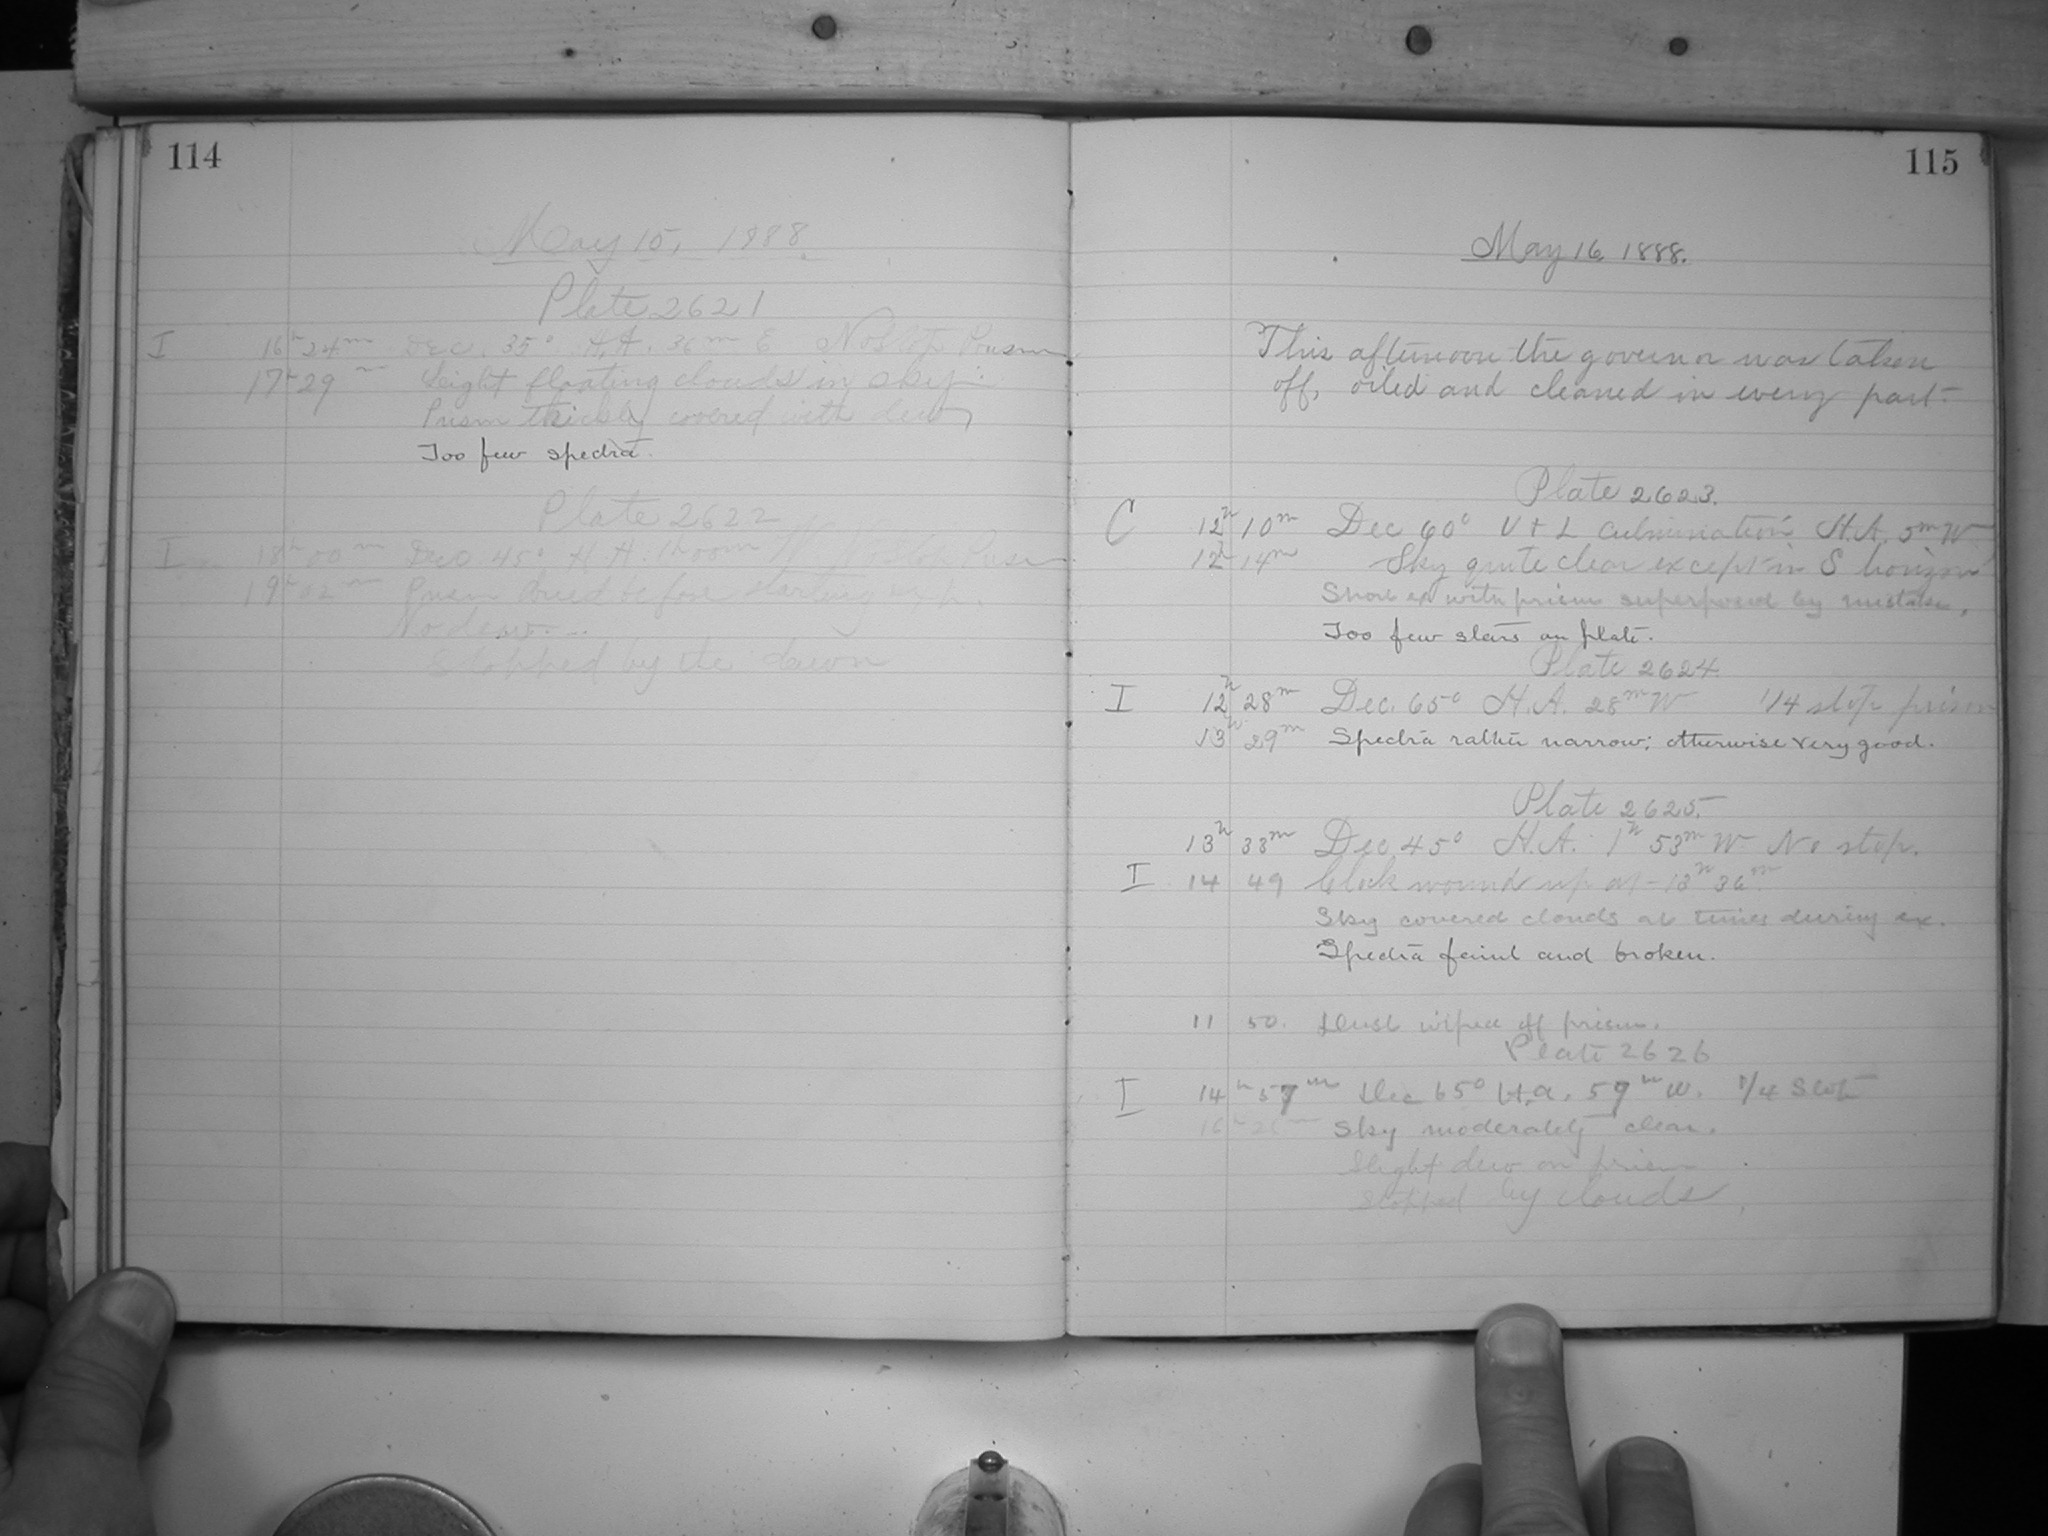 114
May 15, 1888.
Plate 2621
I 16h 24m Dec. 35° H.A. 36m E No Stop Prism
17h 29m Light floating clouds in sky.
Prism thickly covered with dew
Too few spectra.
Plate 2622
I 18h 00m Dec. 45° H.A. 1h 00m W No Stop Prism
19h 02m Prism dried before starting exp.
No dew.
Stopped by the dawn
115
May 16, 1888.
This afternoon the governor was taken
off, oiled and cleaned in every part.
Plate 2623.
C 12h 10m Dec 60° U + L Culmination H.A. 5m W
12h 14m Sky quite clear except in S horizon
Short ex with prism superposed by mistake.
Too few stars on plate.
Plate 2624
I 12h 28m Dec. 65° H.A. 28m W 1/4 stop prism
13h 29m Spectra rather narrow; otherwise very good.
Plate 2625.
13h 33m Dec. 45° H.A. 1h 53m W No stop.
I 14 49 Clock wound up at 13h 36m
Sky covered clouds at times during ex.
Spectra faint and broken.
11 50. Dust wiped off prism.
Plate 2626
I 14h 57m Dec 65° H.a. 59m W. 1/4 Stop
16h Sky moderately clear.
Slight dew on prism
Stopped by clouds.